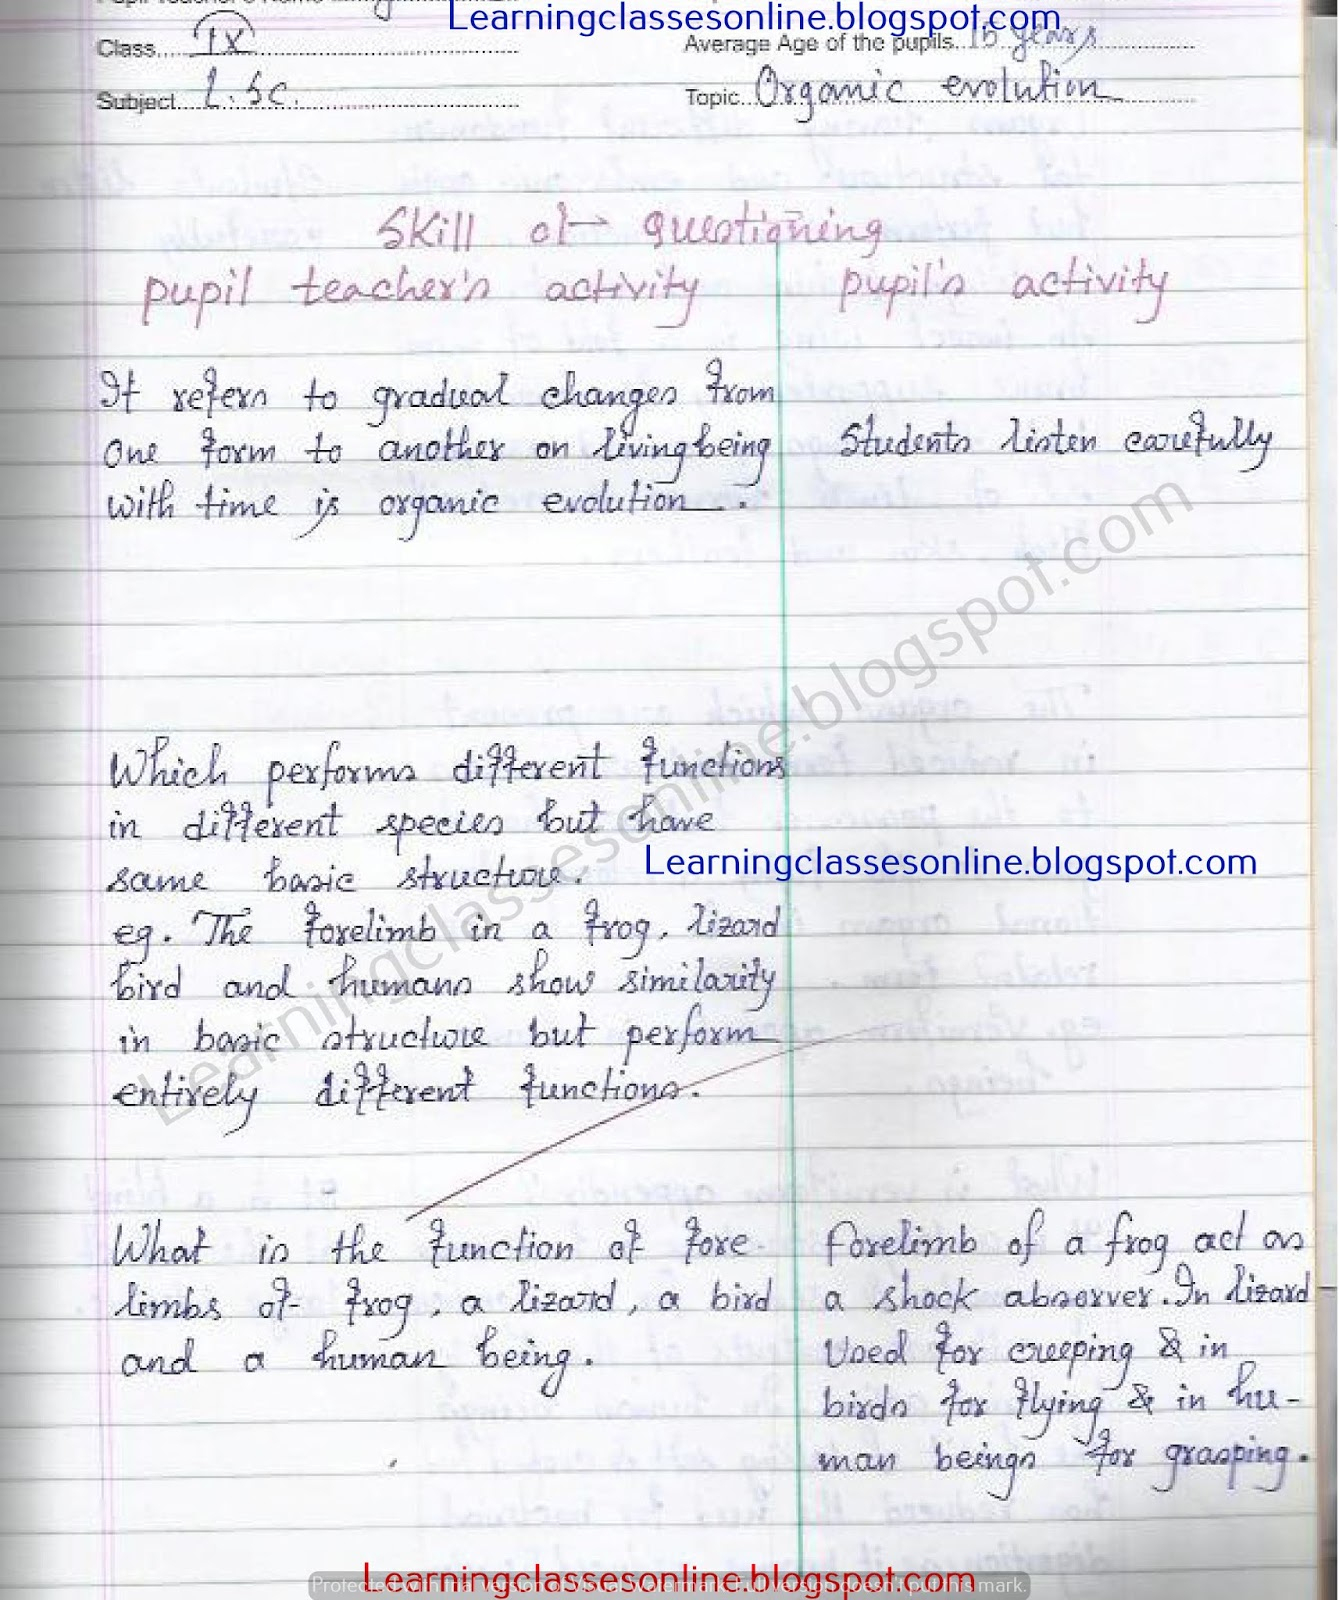 Learningclassesonline.blogspot.com
Class IX
Average Age of the pupils 15 years
Subject L.Sc.
Topic Organic evolution
Skill of questioning
pupil teacher's activity
pupil's activity
It refers to gradual changes from
one form to another on living being
with time is organic evolution.
Students listen carefully
Learningclassesonline.blogspot.com
Which performs different functions
in different species but have
same basic structure.
Learningclassesonline.blogspot.com
eg. The forelimb in a frog, lizard
bird and humans show similarity
in basic structure but perform
entirely different functions.
What is the function of fore
limbs of frog, a lizard, a bird
and a human being.
Forelimb of a frog act as
a shock abserver. In lizard
Used for creeping & in
birds for flying & in hu-
man beings for grasping.
Learningclassesonline.blogspot.com
Protected with trial version of Visual Watermark. Full version doesn't put this mark.